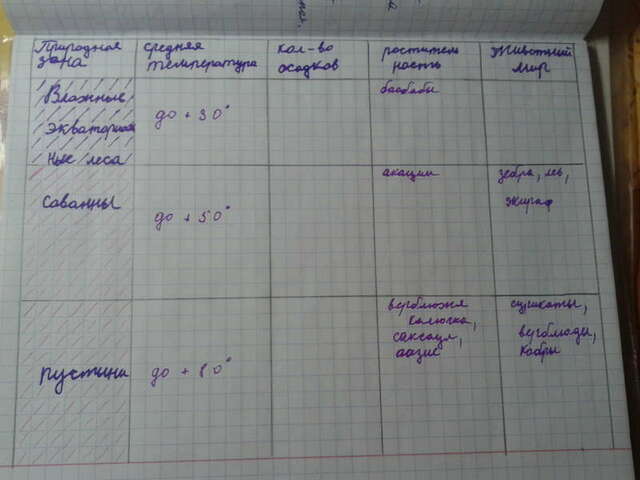 Природная зона
средняя температура
кол-во осадков
роститель ность
Животный мир
Влажные
экваториаль
ные леса
до + 30°
баобабы
Саванны
до + 50°
акации
зебра, лев,
жираф
пустыни
до + 80°
верблюжья
колючка,
саксаул,
оазис
сурикаты,
верблюды,
кобры